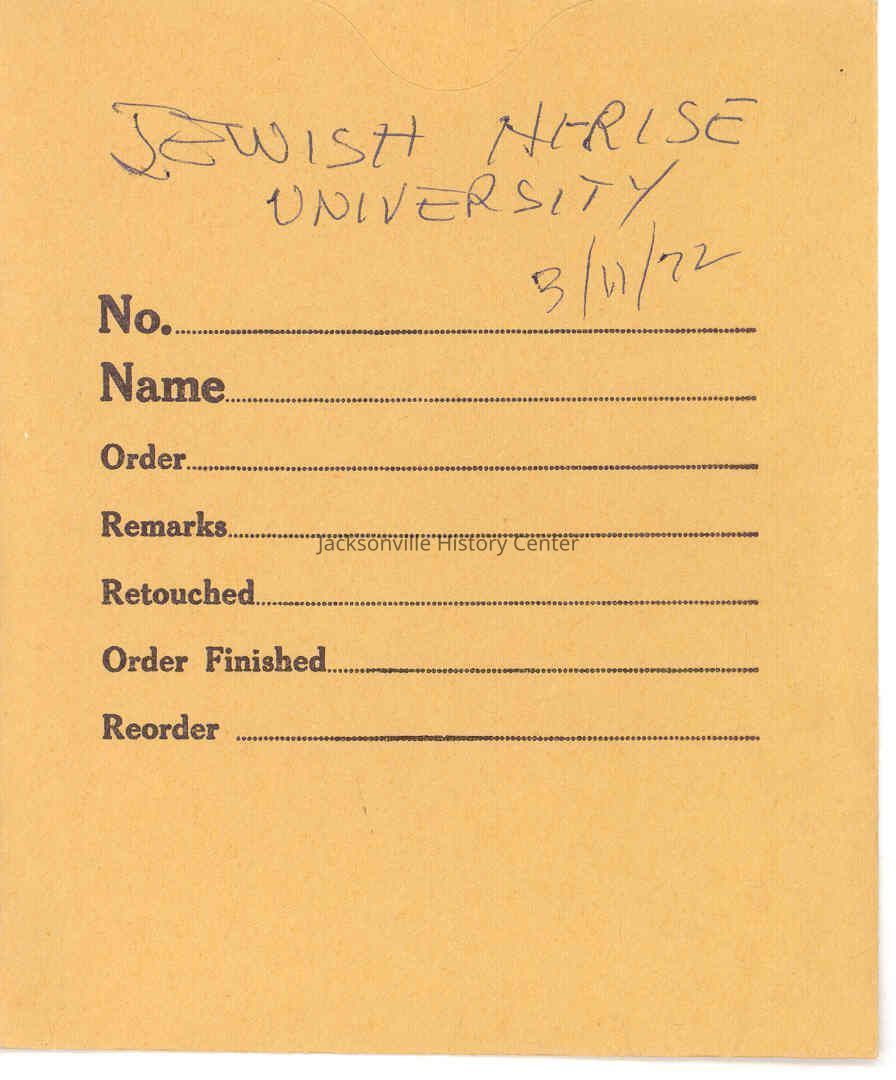 JEWISH HERISE
UNIVERSITY
3/11/72
No.
Name
Order
Remarks
Jacksonville History Center
Retouched
Order Finished
Reorder